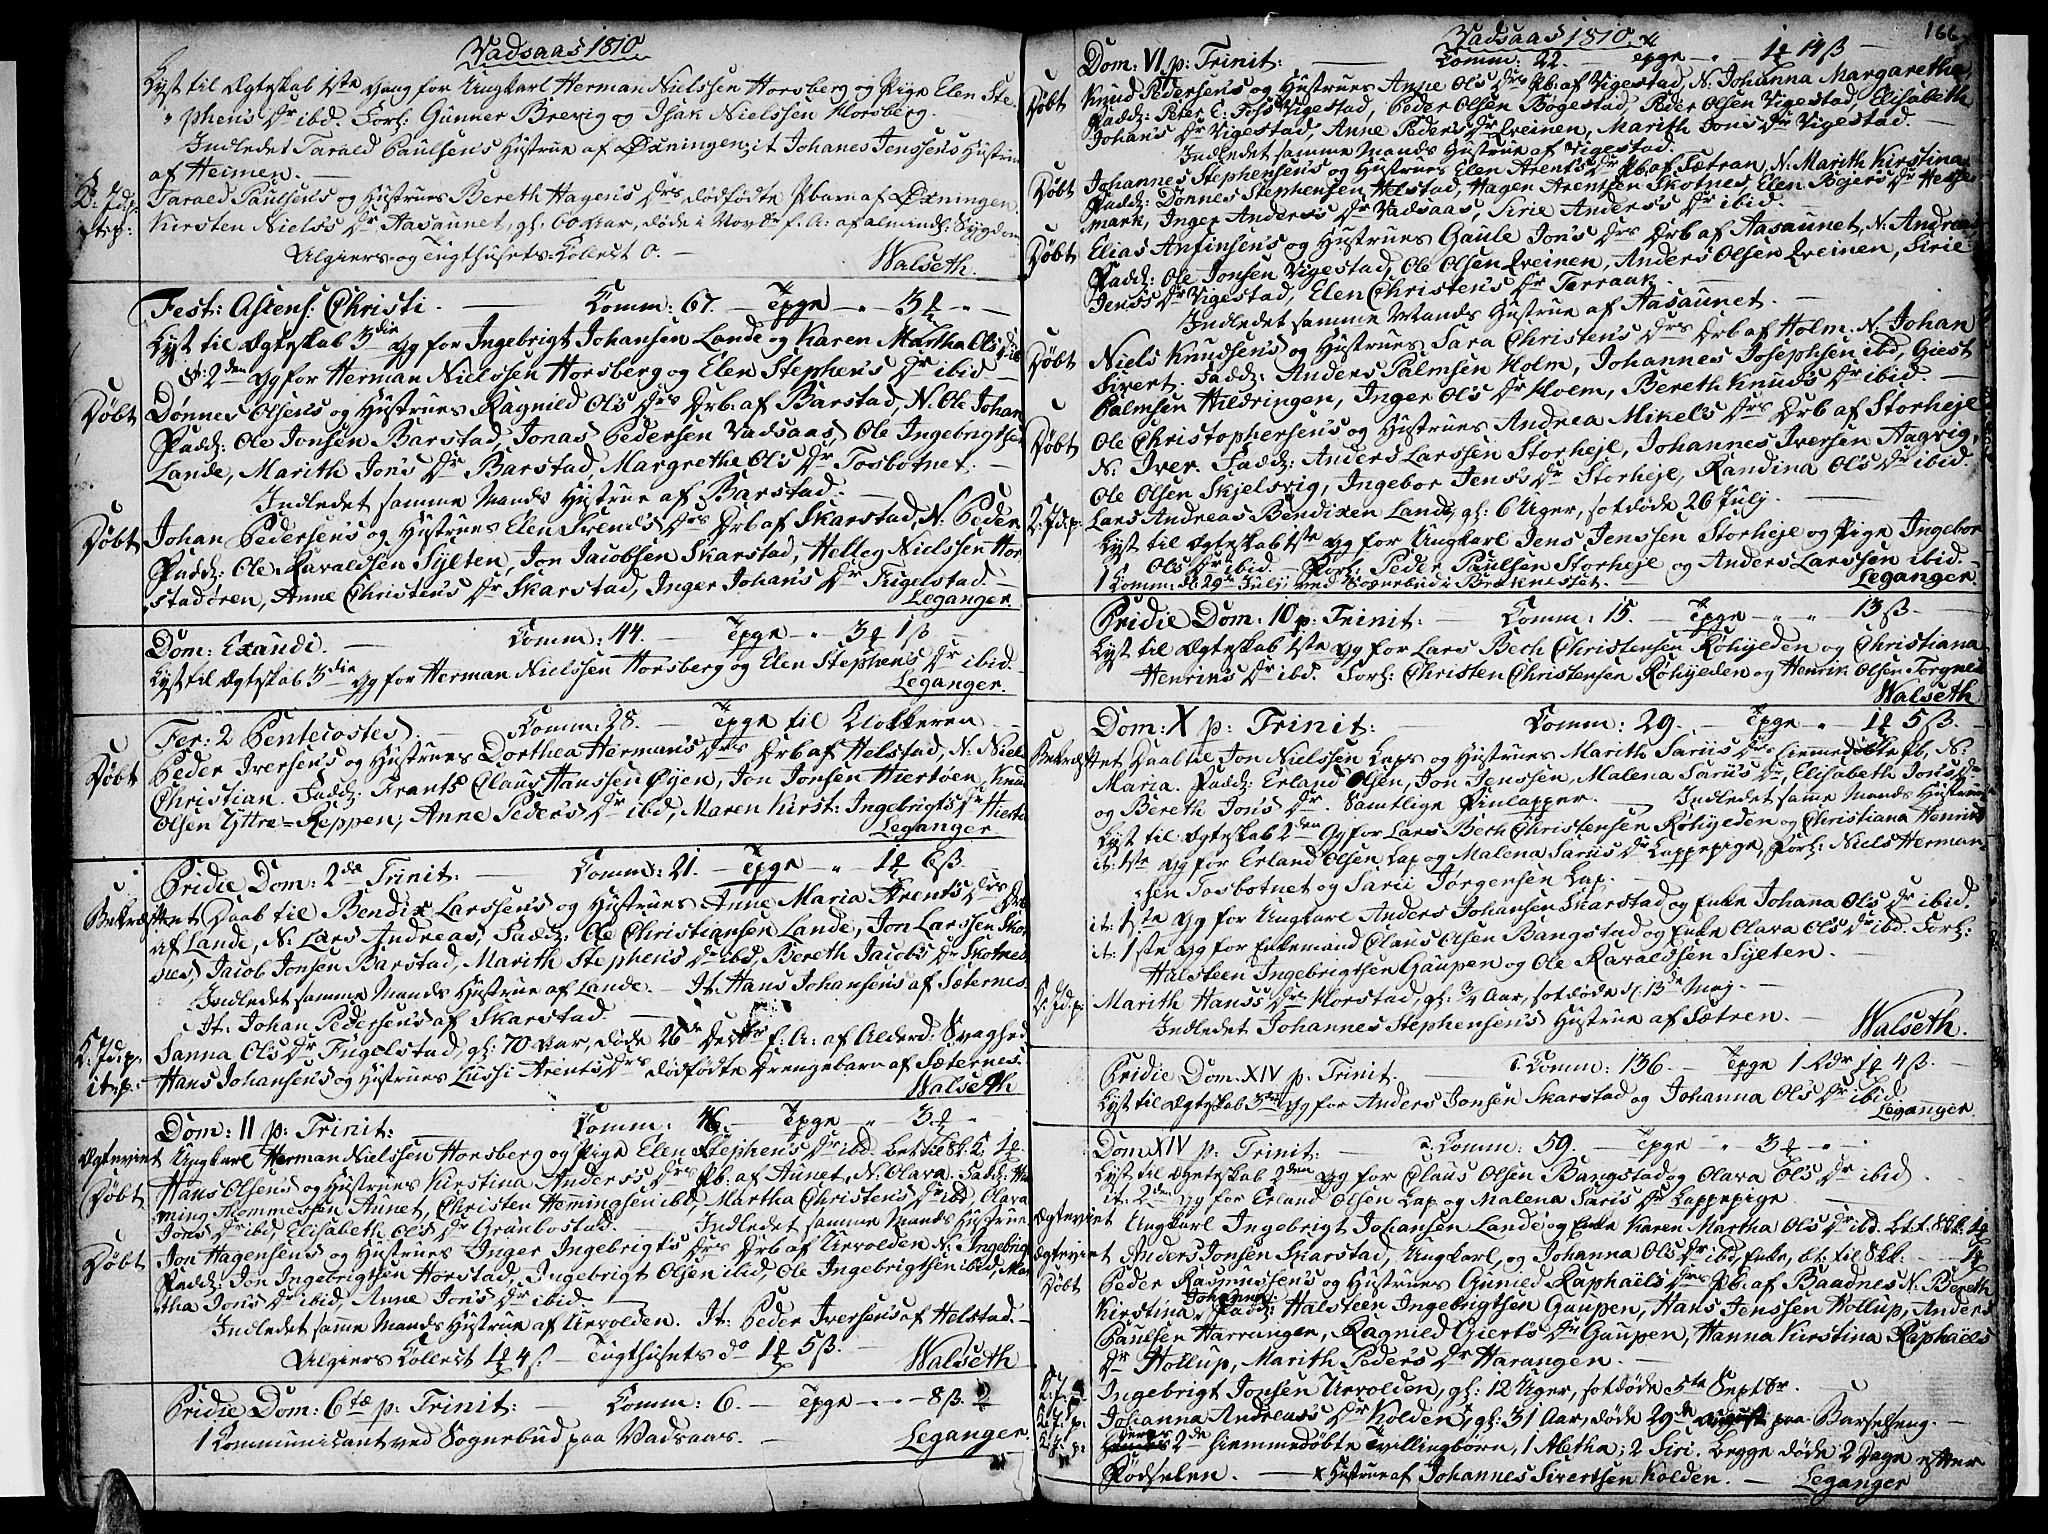 Vadsaas 1810.
Lyst til Ægteskab 1ste Gang for Ungkarl Herman Nielssen Horsberg og Pige Elen Ste-
phens Dr ibid. Forl: Gunner Brevig og Isak Nielssen Horsberg.
Indledet Tarald Paulsen's Hustrue af Dxningen; it Johanes Jenssen's Hustrue
af Heimen.
Tarald Paulsen's og Hustrues Bereth Hagen's Drs dødfødte Pbarn af Dxningen.
Kirsten Niels's Dr Aasaunet, gl: 60 Aar, døde i Novbr f. A: af almindl: Sygdom
Algiers- og Tugthusets-Collect 0.
Walseth.
Fest: Ascens: Christi. Comm: 67. Tpge 3
Lyst til Ægteskab 3die Gg for Ingebrigt Johansen Lande og Karen Martha Ols Dr ibid
it: 2den Gg for Herman Nielssen Horsberg og Elen Stephen's Dr ibid
Døbt Dønnes Olsen's og Hustrues Ragnild Ol's Drs Drb: af Barstad, N. Ole Johan
Fadd: Ole Jonsen Barstad, Jonas Pedersen Vadsaas, Ole Ingebrigtsen
Lande, Marith Jon's Dr Barstad, Margrethe Ol's Dr Tosbotnet.
Indledet samme Mands Hustrue af Barstad.
Døbt Johan Pedersen's og Hustrues Elen Svend's Drs Drb af Skarstad, N: Peder
Fadd: Ole Ravaldsen Sylten, Jon Jacobsen Skarstad, Helleg Nielssen Hor-
stadøren, Anne Christen's Dr Skarstad, Inger Johan's Dr Fugelstad.
Leganger.
Dom: Exaudi. Comm: 44. Tpge 3 1 ß
Lyst til Ægteskab 3die Gg for Herman Nielssen Horsberg og Elen Stephens Dr ibid.
Leganger.
Fer: 2 Pentecostes. Comm: 28. Tpge til Klokkeren
Døbt Peder Iversen's og Hustrues Dorthea Herman's Drs Drb af Helstad, N. Niels
Christian. Fadd: Frants Claus Hanssen Øyen, Jon Jonsen Hiertøen, Knud
Olsen Yttre-Reppen, Anne Peder's Dr ibid, Maren Kirst: Ingebrigts Dr Hiertø
Leganger
Pridie Dom: 2da Trinit: Comm: 21. Tpge 1 6 ß
Bekræftet Daab til Bendix Larssen's og Hustrues Anne Maria Arent's Drs Drb
af Lande, N: Lars Andreas, Fadd: Ole Christiansen Lande, Jon Larssen Skot-
nes, Jacob Jonsen Barstad, Marith Stephen's Dr ibd, Bereth Jacobs Dr Skotnes
Indledet samme Mands Hustrue af Lande. It: Hans Johansens af Sæternes
It: Johan Pedersen's af Skarstad.
Sanna Ol's Dr Fugelstad, gl: 70 Aar, døde 26de Decbr f: A: af Alderd: Svaghed
it: p: Hans Johansen's og Hustrues Lussi Arents Drs dødfødte Drengebarn af Sæternes.
Walseth
Dom: 11 p: Trinit: Comm: 46. Tpge 3
Ægteviet Ungkarl Herman Nielssen Horsberg og Pige Elen Stephen's Dr ibd.
Døbt Hans Olsen's og Hustrues Kirstina Anders's Drs Pb: af Aunet, N: Olava. Fadd: He-
ming Mommessen Aunet, Christen Hemmingsen ibd, Martha Christen's Dr ibd, Olava
Jon's Dr ibd, Elisabeth Ol's Dr Granbostad. Indledet samme Mands Hustrue
Døbt Jon Hagensen's og Hustrues Inger Ingebrigt's Drs Drb af Urvolden N: Ingebrigt
Fadd: Jon Ingebrigtsen Horstad, Ingebrigt Olsen ibid, Ole Ingebrigtsen ibid, Mar-
tha Jon's Dr ibid, Anne Jon's Dr ibid
Indledet samme Mands Hustrue af Urvolden. It: Peder Iversen's af Helstad.
Algiers Collect 1 4 ß Tugthusets do 1 5 ß.
Walseth
Pridie Dom: 6tæ p: Trinit: Comm: 6. Tpge 8 ß
1 Communicant ved Sognebud paa Vadsaas.
Leganger.
Vadsaas 1810.
166
Dom: VI p: Trinit: Comm: 22. Tpge 1 14 ß
Døbt Knud Pedersen's og Hustrues Anne Ol's Drs Pb: af Vigestad, N. Johanna Margaretha,
Fadd: Peter E: Foss Vigestad, Peder Olsen Bogestad, Peder Olsen Vigestad, Elisabeth
Johan's Dr Vigestad, Anne Peder's Dr Qveinen, Marith Jon's Dr Vigestad.
Indledet samme Mands Hustrue af Vigestad.
Døbt Johannes Stephensen's og Hustrues Elen Arent's Dr Pb: af Sætran, N: Marith Kirstina
Fadd: Dønnes Stephensen Helstad, Hagen Arentsen Skotnes, Elen Bejer's Dr Heste-
mark, Inger Anders's Dr Vadsaas, Sirie Anders's Dr ibid.
Døbt Elias Anfinsen's og Hustrues Gaule Jon's Drs Drb af Aasaunet, N: Andreas
Fadd: Ole Jonsen Vigestad, Ole Olsen Qveinen, Anders Olsen Qveinen, Sirie
Jens's Dr Vigestad, Elen Christen's Dr Terraak.
Indledet samme Mands Hustrue af Aasaunet.
Døbt Niels Knudsen's og Hustrues Sara Christen's Drs Drb af Holm. N: Johan
Sivert. Fadd: Anders Palmsen Holm, Johannes Josephsen ibd, Giest
Palmsen Hildringen, Inger Ol's Dr Holm, Bereth Knud's Dr ibid.
Døbt Ole Christophersen's og Hustrues Andrea Mikel's Drs Drb af Storheje
N. Iver. Fadd: Anders Larssen Storheje, Johannes Iversen Aagvig,
Ole Olsen Skjelsvig, Ingebor Jens's Dr Storheje, Randina Ol's Dr ibid.
Lars Andreas Bendixen Lande, gl: 6 Uger, sotdøde 26 July.
Lyst til Ægteskab 1ste Gg for Ungkarl Jens Jenssen Storheje og Pige Ingebor
Ols Dr ibid. Forl: Peder Paulsen Storheje og Anders Larssen ibid.
1 Comm: d. 29de July ved Sognebud i Brækneset.
Leganger
Pridie Dom: 10 p: Trinit: Comm: 15. Tpge 13 ß
Lyst til Ægteskab 1ste Gg for Lars Bech Christensen Røhylden og Christiana
Henrik's Dr ibd. Forl: Christen Christensen Røhylden og Henrik Olsen Torgnes
Walseth
Dom: X p: Trinit: Comm: 29. Tpge 1 5 ß.
Bekræftet Daab til Jon Nielssen Laps og Hustrues Marith Sarii's Drs hiemmedøbte Pb, N:
Maria. Fadd: Erland Olsen, Jon Jenssen, Malena Sarii's Dr, Elisabeth Jon's Dr
og Bereth Jon's Dr. Samtlige Finlapper. Indledet same Mands Hustrue
Lyst til Ægteskab 2den Gg for Lars Bech Christensen Røhylden og Christiana Henriks
it: 1ste Gg for Erland Olsen Lap og Malena Sarii's Dr Lappepige, Forl: Niels Herman-
sen Tosbotnet og Sarii Jørgensen Lap.
it: 1ste Gg for Ungkarl Anders Johansen Skarstad og Enke Johana Ol's Dr ibid.
it: 1ste Gg for Enkemand Claus Olsen Bangstad og Enke Olava Ol's Dr ibd. Forl:
Halsteen Ingebrigtsen Gaupen og Ole Ravaldssen Sylten.
Marith Hans's Dr Horstad, gl: 3/4 Aar, sotdøde d. 13de Maj.
Indledet Johannes Stephensen's Hustrue af Sætren.
Walseth.
Pridie Dom. XIV p: Trinit. Comm: 136. Tpge 1 Rdr 1 4 ß.
Lyst til Ægteskab 3die Gg for Anders Jonsen Skarstad og Johanna Ols Dr ibid.
Leganger
Dom XIV p: Trinit: Comm: 59. Tpge 3
Lyst til Ægteskab 2den Gg for Claus Olsen Bangstad og Olava Ol's Dr ibid.
it: 2den Gg for Erland Olsen Lap og Malena Saris Dr Lappepige
Ægteviet Ungkarl Ingebrigt Johansen Lande og Enke Karen Martha Ols Dr ibd.
Ægteviet Anders Jonsen Skarstad, Ungkarl, og Johanna Ols Dr ibd, Enke, bt: til Skl:
Døbt Peder Rasmussen's og Hustrues Gunied Raphaël's Drs Pb: af Baadnes N. Bereth
Kirstina Johanna. Fadd: Halsteen Ingebrigtsen Gaupen, Hans Jenssen Hollup, Anders
Paulsen Harrangen, Ragnied Giert's Dr Gaupen, Hanna Kirstina Raphaëls
Dr Hollup, Marith Peder's Dr Harangen.
Ingebrigt Jonsen Urvolden, gl: 12 Uger, sotdøde 5te Septbr.
Johanna Andreas's Dr Kolden x, gl: 31 Aar, døde 29de August paa Barselseng.
deres 2de hiemmedøbte Tvillingbørn, 1 Aletha; 2 Siri. begge døde 2 Dage efter
Fødselen. x Hustrue af Johannes Sivertsen Kolden.
Leganger